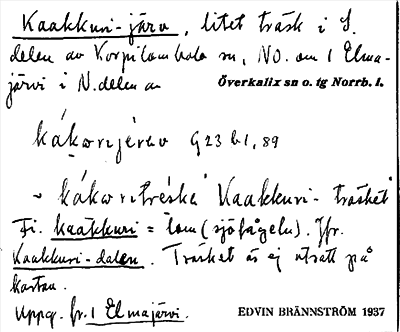 Kaakkuri-järv, litet träsk i S.
delen av Korpilombolo sn, NO. om 1 Elma-
järvi i N. delen av Överkalix sn o. tg Norrb. l.
kákorijärav G23 b1, 89
~ kákoritreskə "Kaakkuri-träsket"
Fi. kaakkuri = lom (sjöfågeln). Jfr.
Kaakkuri-dalen. Träsket är ej utsatt på
kartan.
Uppg. fr. 1 Elmajärvi. EDVIN BRÄNNSTRÖM 1937